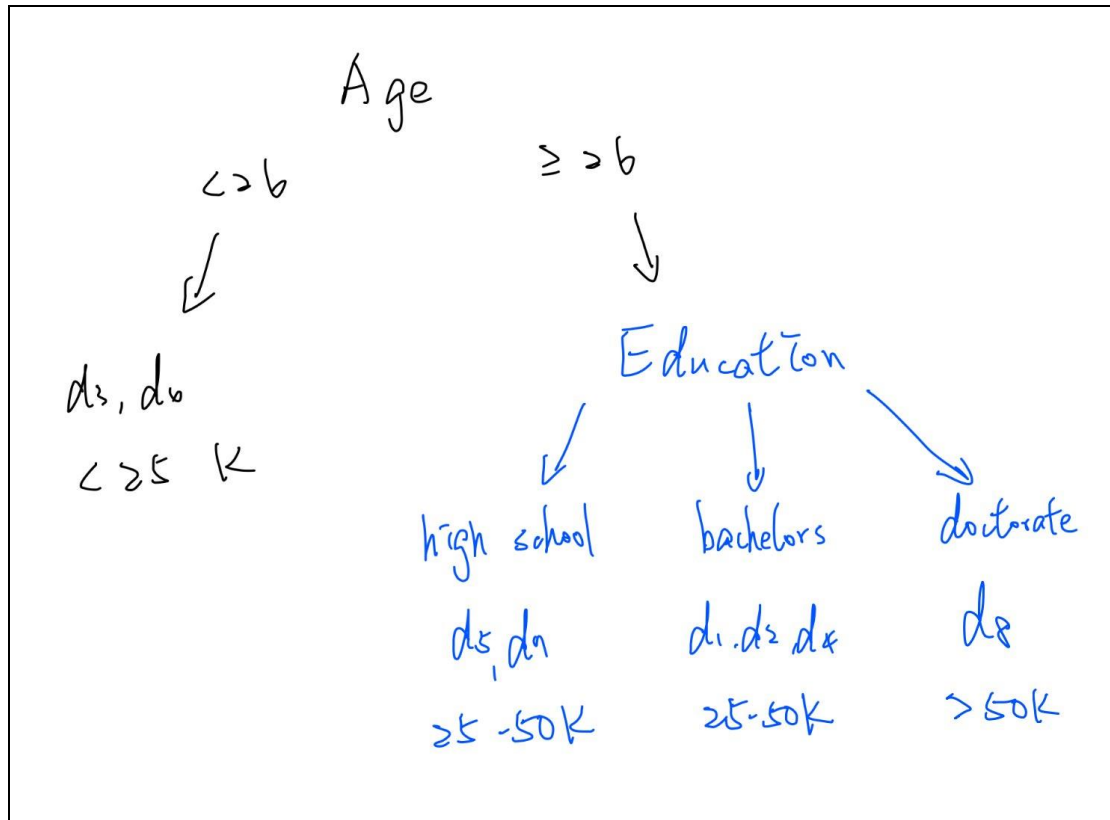 Age
<26
≥26
d3, d6
<25 K
Education
high school
bachelors
doctorate
d5, d7
d1.d2.d4
d8
25-50K
25-50K
>50K